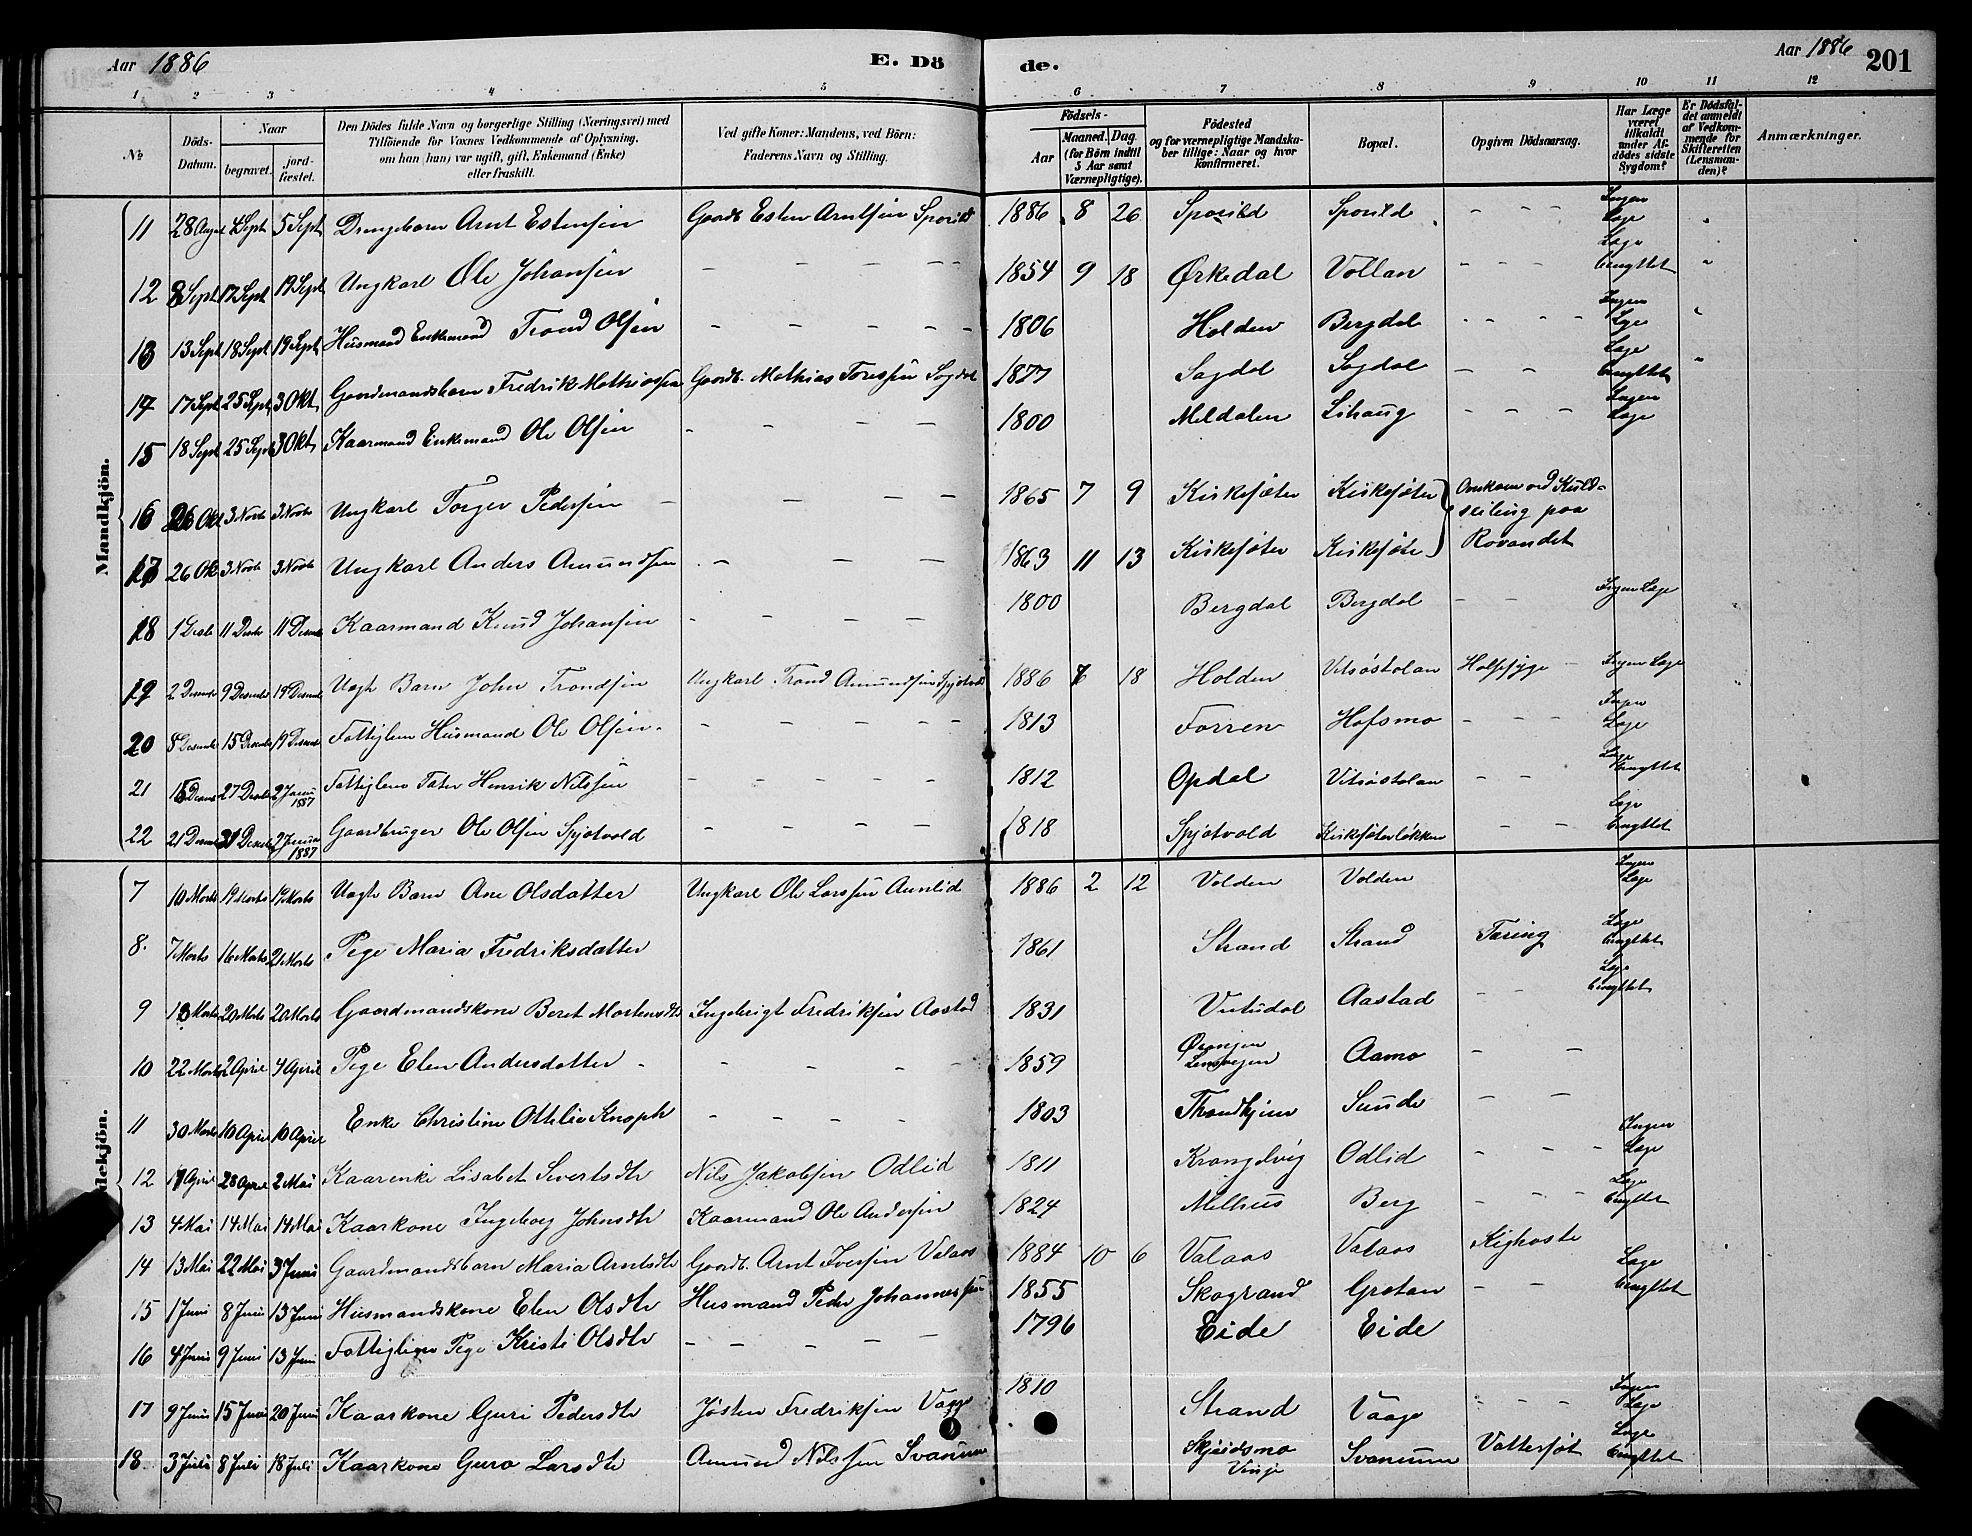 Aar 1886 E. Dö de. Aar 1886 201
1 2 3 4 5 6 7 8 9 10 11 12
№ Döds-Datum. Naar begravet. jord-fæstet. Den Dödes fulde Navn og borgerlige Stilling (Næringsvei) med Tilföiende for Voxnes Vedkommende af Oplysning, om han (hun) var ugift, gift, Enkemand (Enke) eller fraskilt. Ved gifte Koner: Mandens, ved Börn: Faderens Navn og Stilling. Födsels- Aar Maaned. Dag. (for Börn indtil 5 Aar samt Værnepligtige). Födested og for værnepligtige Mandska-ber tillige: Naar og hvor konfirmeret. Bopæl. Opgiven Dödsaarsag. Har Læge været tilkaldt under Af-dödes sidste Sygdom? Er Dödsfal-det anmeldt af Vedkom-mende for Skifteretten (Lensman-den)? Anmærkninger.
Mandkjön.
11 28 August 4 Sept 5 Sept Drengebarn Arnt Estensen Gaardb. Esten Arntsen Sporild 1886 8 26 Sporild Sporild - - - Ingen Læge
12 8 Sept 17 Sept 19 Sept Ungkarl Ole Johansen - - - - 1854 9 18 Ørkedal Vollan - - - Læge benyttet
13 13 Sept 18 Sept 19 Sept Husmand Enkemand Trond Olsen - - - - 1806 Holden Bergdal - - - Ingen Læge
14 17 Sept 25 Sept 3 Okt Gaardmandsbarn Fredrik Mathiassen Gaardb. Mathias Toressen Sagdal 1877 Sagdal Sagdal - - Læge benyttet
15 18 Sept 25 Sept 3 Okt Kaarmand Enkemand Ole Olsen - - - - 1800 Meldalen Lihaug - - - Ingen Læge
16 26 Okt 3 Novbr 3 Novbr Ungkarl Torger Pedersen - - - - 1865 7 9 Kirkesæter Kirkesæter Omkom ved Kuld-seiling paa
17 26 Okt 3 Novbr 3 Novbr Ungkarl Anders Amundsen - - - 1863 11 13 Kirkesæter Kirkesæter Rovandet
18 1 Desbr 11 Desbr 11 Desember Kaarmand Knud Johansen - - - - 1800 Bergdal Bergdal - - Ingen Læge
19 2 Desember 9 Desember 19 Desember Uægte Barn John Trondsen Ungkarl Trond Amundsen Spjøtvold 1886 7 18 Holden Vitsøstølan Halssyge - Ingen Læge
20 8 Desember 15 Desember 19 Desember Fattiglem Husmand Ole Olsen - - - - 1813 Forren Hofsmo - - - Ingen Læge
21 15 Desember 27 Desember 2 Januar 1887 Fattiglem Tater Henrik Nilssen - - - - 1812 Opdal Vitsøstølan - - Læge benyttet
22 21 Desember 31 Desember 2 Januar 1887 Gaardbruger Ole Olsen Spjøtvold - - - - 1818 Spjøtvold Kirksæterløkken - - Læge benyttet
7 10 Marts 19 Marts 19 Marts Uægte Barn Ane Olsdatter Ungkarl Ole Larssen Aunlid 1886 2 12 Volden Volden Ingen Læge
8. 7 Marts 16 Marts 21 Marts Pige Maria Fredriksdatter 1861 Strand Strand Tæring Læge benyttet
9 13 Marts 20 Marts 20 Marts Gaardmandskone Beret Mortensdtr Ingebrigt Fredriksen Aastad 1831 Aastad - - Læge benyttet
10 22 Marts 2 April 4 April Pige Elen Andersdatter - - - - 1859 Lensvigen Aamo - -
11 30 Marts 10 April 10 April Enke Christine Ottilie Knoph - - - - 1803 Throndhjem Sunde - -
12 17 April 28 April 2 Mai Kaarenke Lisabet Sivertsdtr Nils Jakobsen Odlid 1811 Krangelvig Odlid - - - Ingen Læge
13 4 Mai 14 Mai 14 Mai Kaarkone Ingeborg Johnsdtr Kaarmand Ole Andersen 1824 Melhus Berg - - - Læge benyttet
14 13 Mai 22 Mai 3 Juni Gaardmandsbarn Maria Arntsdtr Gaardb. Arnt Iversen Valaas 1884 10 6 Valaas Valaas Kighoste
15 1 Juni 8 Juni 13 Juni Husmandskone Elen Olsdtr Husmand Peder Johannessen 1855 Skogrand Grøtan - - Læge benyttet
16 4 Juni 9 Juni 13 Juni Fattiglem Pige Kristi Olsdtr - - - - 1796 Eide Eide
17 9 Juni 15 Juni 20 Juni Kaarkone Guri Pedersdtr Jøsten Fredriksen Vaage 1810 Strand Vaage - - - Ingen Læge
18. 3 Juli 8 Juli 18 Juli Kaarkone Guro Larsdtr Amund Nilssen Svanem Skjeidsmo Vinje Svanem Vattersot Læge benyttet
dekjön.